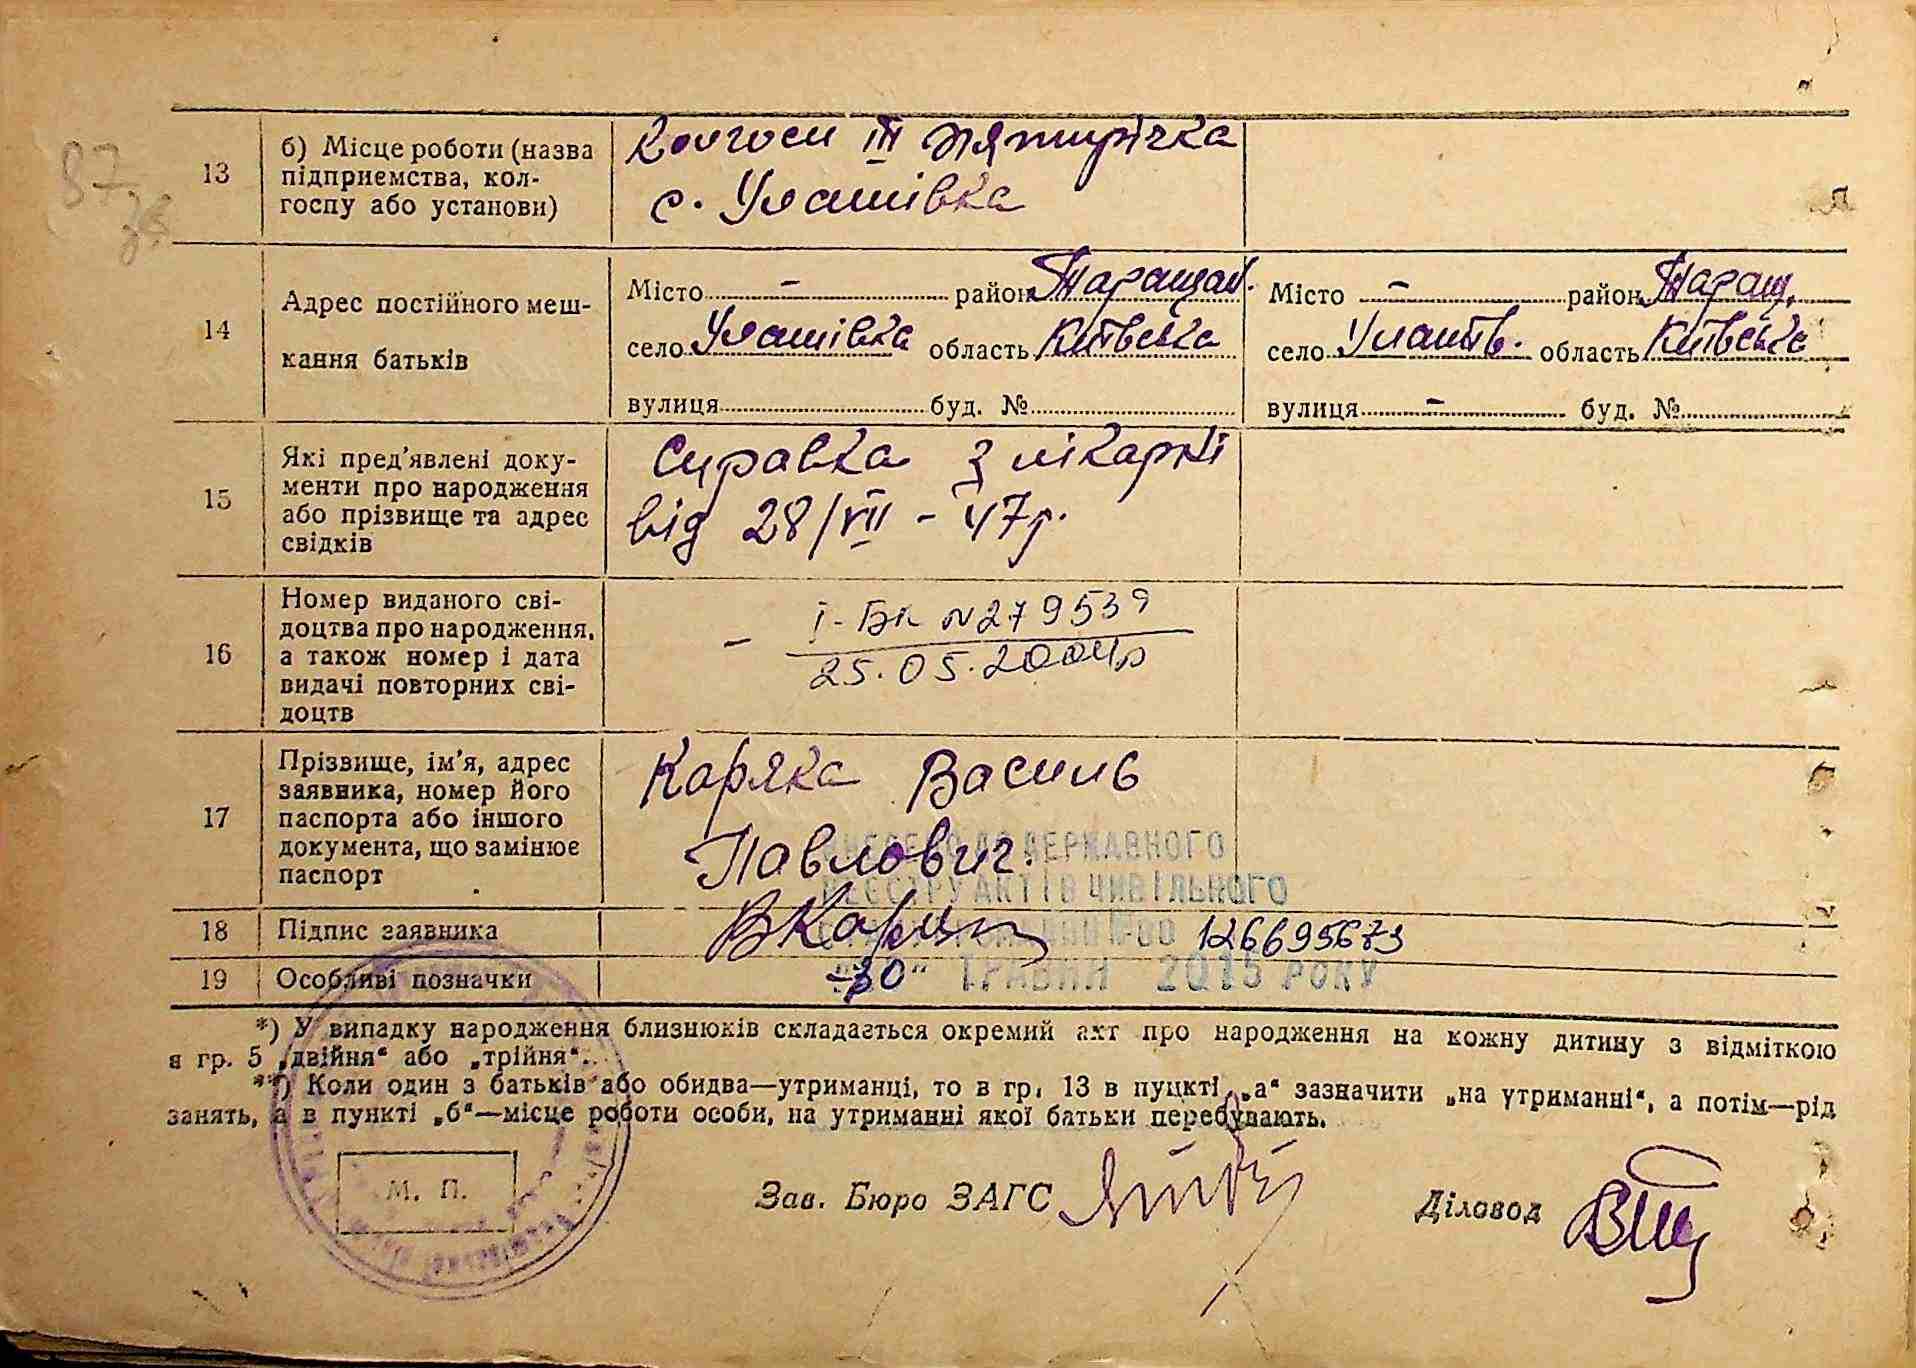 13
б) Місце роботи (назва
підприємства, кол-
госпу або установи)
Колгосп III пятирічка
с. Улашівка
14
Адрес постійного меш-
кання батьків
Місто - район Таращан.
село Улашівка область Київська
вулиця буд. №
Місто - район Таращ.
село Улашів. область Київська
вулиця - буд. №
15
Які пред'явлені доку-
менти про народження
або прізвище та адрес
свідків
Справка з лікарні
від 28/VII - 47р.
16
Номер виданого сві-
доцтва про народження,
а також номер і дата
видачі повторних сві-
доцтв
- І-БК №279539
25.05.2004р
17
Прізвище, ім'я, адрес
заявника, номер його
паспорта або іншого
документа, що замінює
паспорт
Каряка Василь
Павлович.
ВНЕСЕНО ДО ДЕРЖАВНОГО
РЕЄСТРУ АКТІВ ЦИВІЛЬНОГО
18
Підпис заявника
ВКаряка
126695673
19
Особливі позначки
"30" ТРАВНЯ 2015 РОКУ
*) У випадку народження близнюків складається окремий акт про народження на кожну дитину з відміткою
в гр. 5 „двійня“ або „трійня“.
**) Коли один з батьків або обидва—утриманці, то в гр. 13 в пункті „а“ зазначити „на утриманні“, а потім—рід
занять, а в пункті „б“—місце роботи особи, на утриманні якої батьки перебувають.
М. П.
Зав. Бюро ЗАГС
Діловод